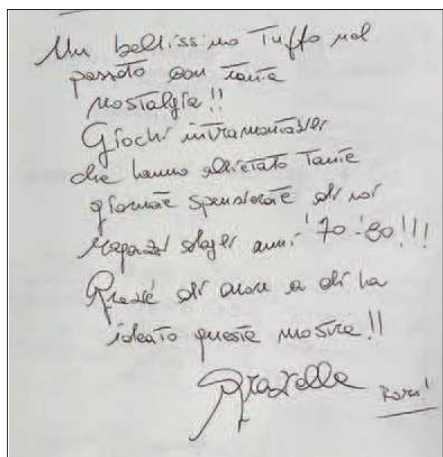 Un bellissimo tuffo nel
passato con tanta
nostalgia!!
Giochi intramontabili
che hanno allietato tante
giornate spensierate di noi
ragazzi degli anni '70-'80!!!
Grazie di cuore a chi ha
ideato questa mostra!!
Graziella